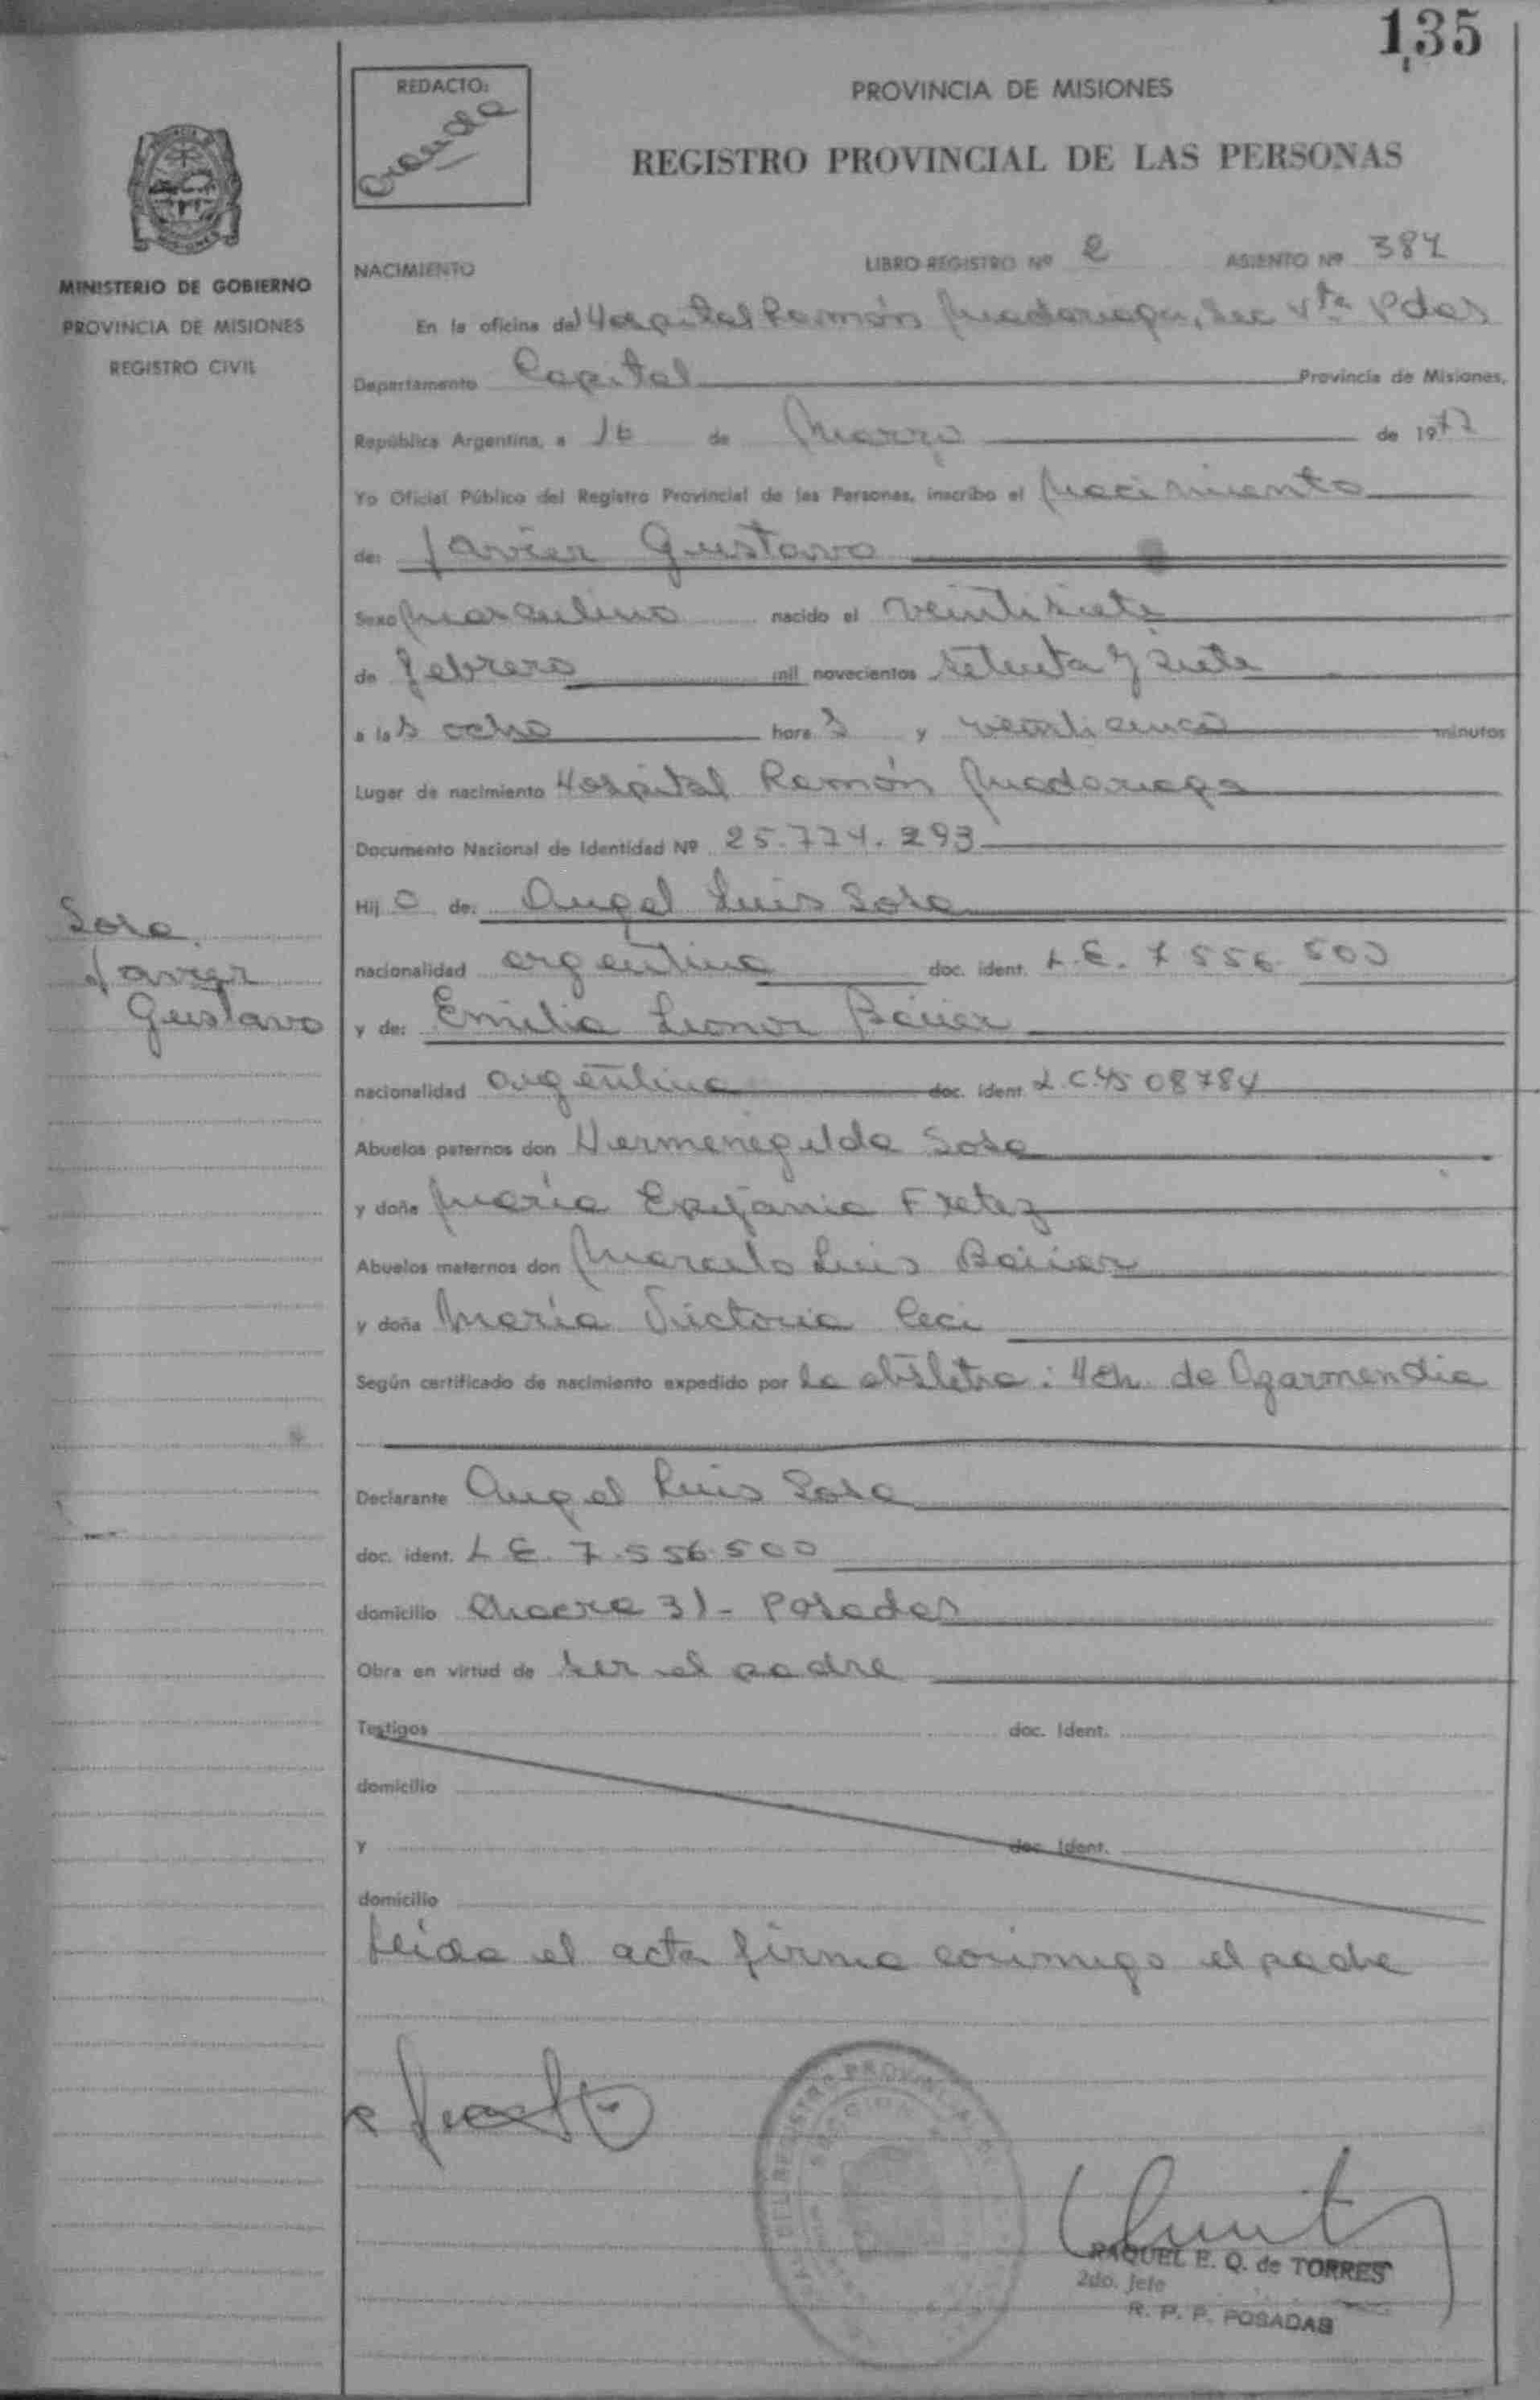 135
REDACTO:
PROVINCIA DE MISIONES
REGISTRO PROVINCIAL DE LAS PERSONAS
MINISTERIO DE GOBIERNO
PROVINCIA DE MISIONES
REGISTRO CIVIL
NACIMIENTO LIBRO REGISTRO Nº 2 ASIENTO Nº 384
En la oficina del Hospital Ramón Madariaga, Sec Vta Pdas
Departamento Capital Provincia de Misiones,
República Argentina, a 16 de Marzo de 1977
Yo Oficial Público del Registro Provincial de las Personas, inscribo el Nacimiento
de: Javier Gustavo
Sexo Masculino nacido el veintisiete
de febrero mil novecientos setenta y siete
a las ocho horas y veinticinco minutos
Lugar de nacimiento Hospital Ramón Madariaga
Documento Nacional de Identidad Nº 25.774.293
Hijo de: Angel Luis Sosa
nacionalidad argentina doc. ident. L.E. 7 556 500
y de: Emilia Leonor
nacionalidad argentina doc. ident. L.C. 4508784
Abuelos paternos don Hermenegildo Sosa
y doña María Epifania Fretez
Abuelos maternos don Marcelo Luis
y doña María Victoria Ceci
Según certificado de nacimiento expedido por La obstetra: de Ogarmendia
Declarante Angel Luis Sosa
doc. ident. L E. 7.556.500
domicilio Chacra 31 - Posadas
Obra en virtud de ser el padre
Testigos doc. Ident.
domicilio
y doc. Ident.
domicilio
Leida el acta firma conmigo el padre
Sosa
Javier
Gustavo
RAQUEL E. Q. de TORRES
2do. Jefe
R. P. P. POSADAS